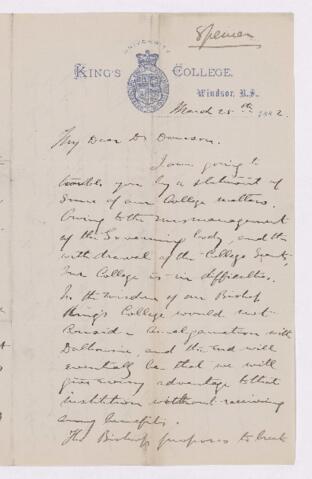 Spencer
UNIVERSITY
KING'S COLLEGE.
Windsor, N.S.
March 25th 1882.
My Dear Dr Dawson.
I am going to
trouble you by a statement of
some of our College matters.
Owing to the mismanagement
of the Governing body, and the
withdrawal of the College Grant,
our College is in difficulties.
In the wisdom of our Bishop
King's College would not
consider amalgamation with
Dalhousie, and the end will
eventually be that we will
give every advantage to that
institution without receiving
any benefits.
The Bishop proposes to